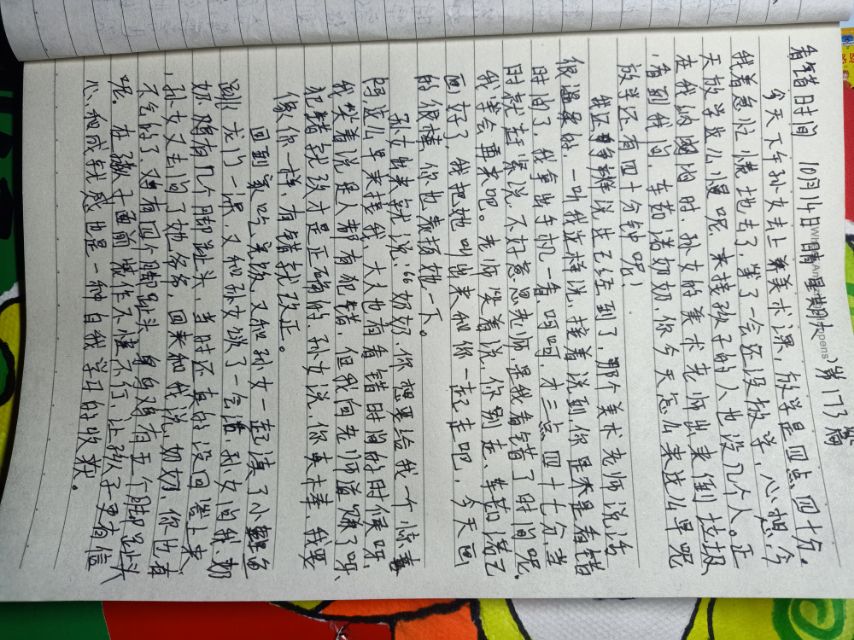 看错时间 10月14日 晴 星期六 第173篇
今天下午孙女去上美术课,放学是四点四十分.
我着急忙慌地去了,等了一会还没放学,心想今
天放学怎么慢呢,来接孩子的人也没几个人。正
在我纳闷时孙女的美术老师出来倒垃圾
,看到我问 车茹潞奶奶,你今天怎么来这么早呢
放学还有四十分钟呢!
我还说已经到了,那个美术老师说话
很温柔的,一叫我这样说,接着说到,你是不是看错
时间了,我拿出手机一看呵呵,才三点四十七分当
时就赶紧说不好意思老师,是我看错了时间呢.
我等会再来吧。老师笑着说,你别走,车茹潞已
画好了,我把她叫出来和你一起走吧,今天画
的很棒,你也表扬她一下。
孙女出来就说:“奶奶,你想要给我一个惊喜
吗这么早来接我,大人也有看错时间的时候呀,
我笑着说是人都有犯错,但我向老师道歉了呀、
犯错就改才是正确的,孙女说,你真棒,我要
像你一样,有错就改正。
回到家吃完饭又和孙女一起读了小鲤鱼
跳龙门一课,又和孙女谈了一会话,孙女问我,奶
奶鸡有几个脚趾头,当时还真的没回答上来
,孙女又去问了她爷爷,回来和我说,奶奶,你也有
不知的了,鸡有四个脚趾头,乌鸡有五个脚趾头
呢.在孩子面前装作不懂不行,让孩子更有信
心和成就感也是一种自我学习的收获。